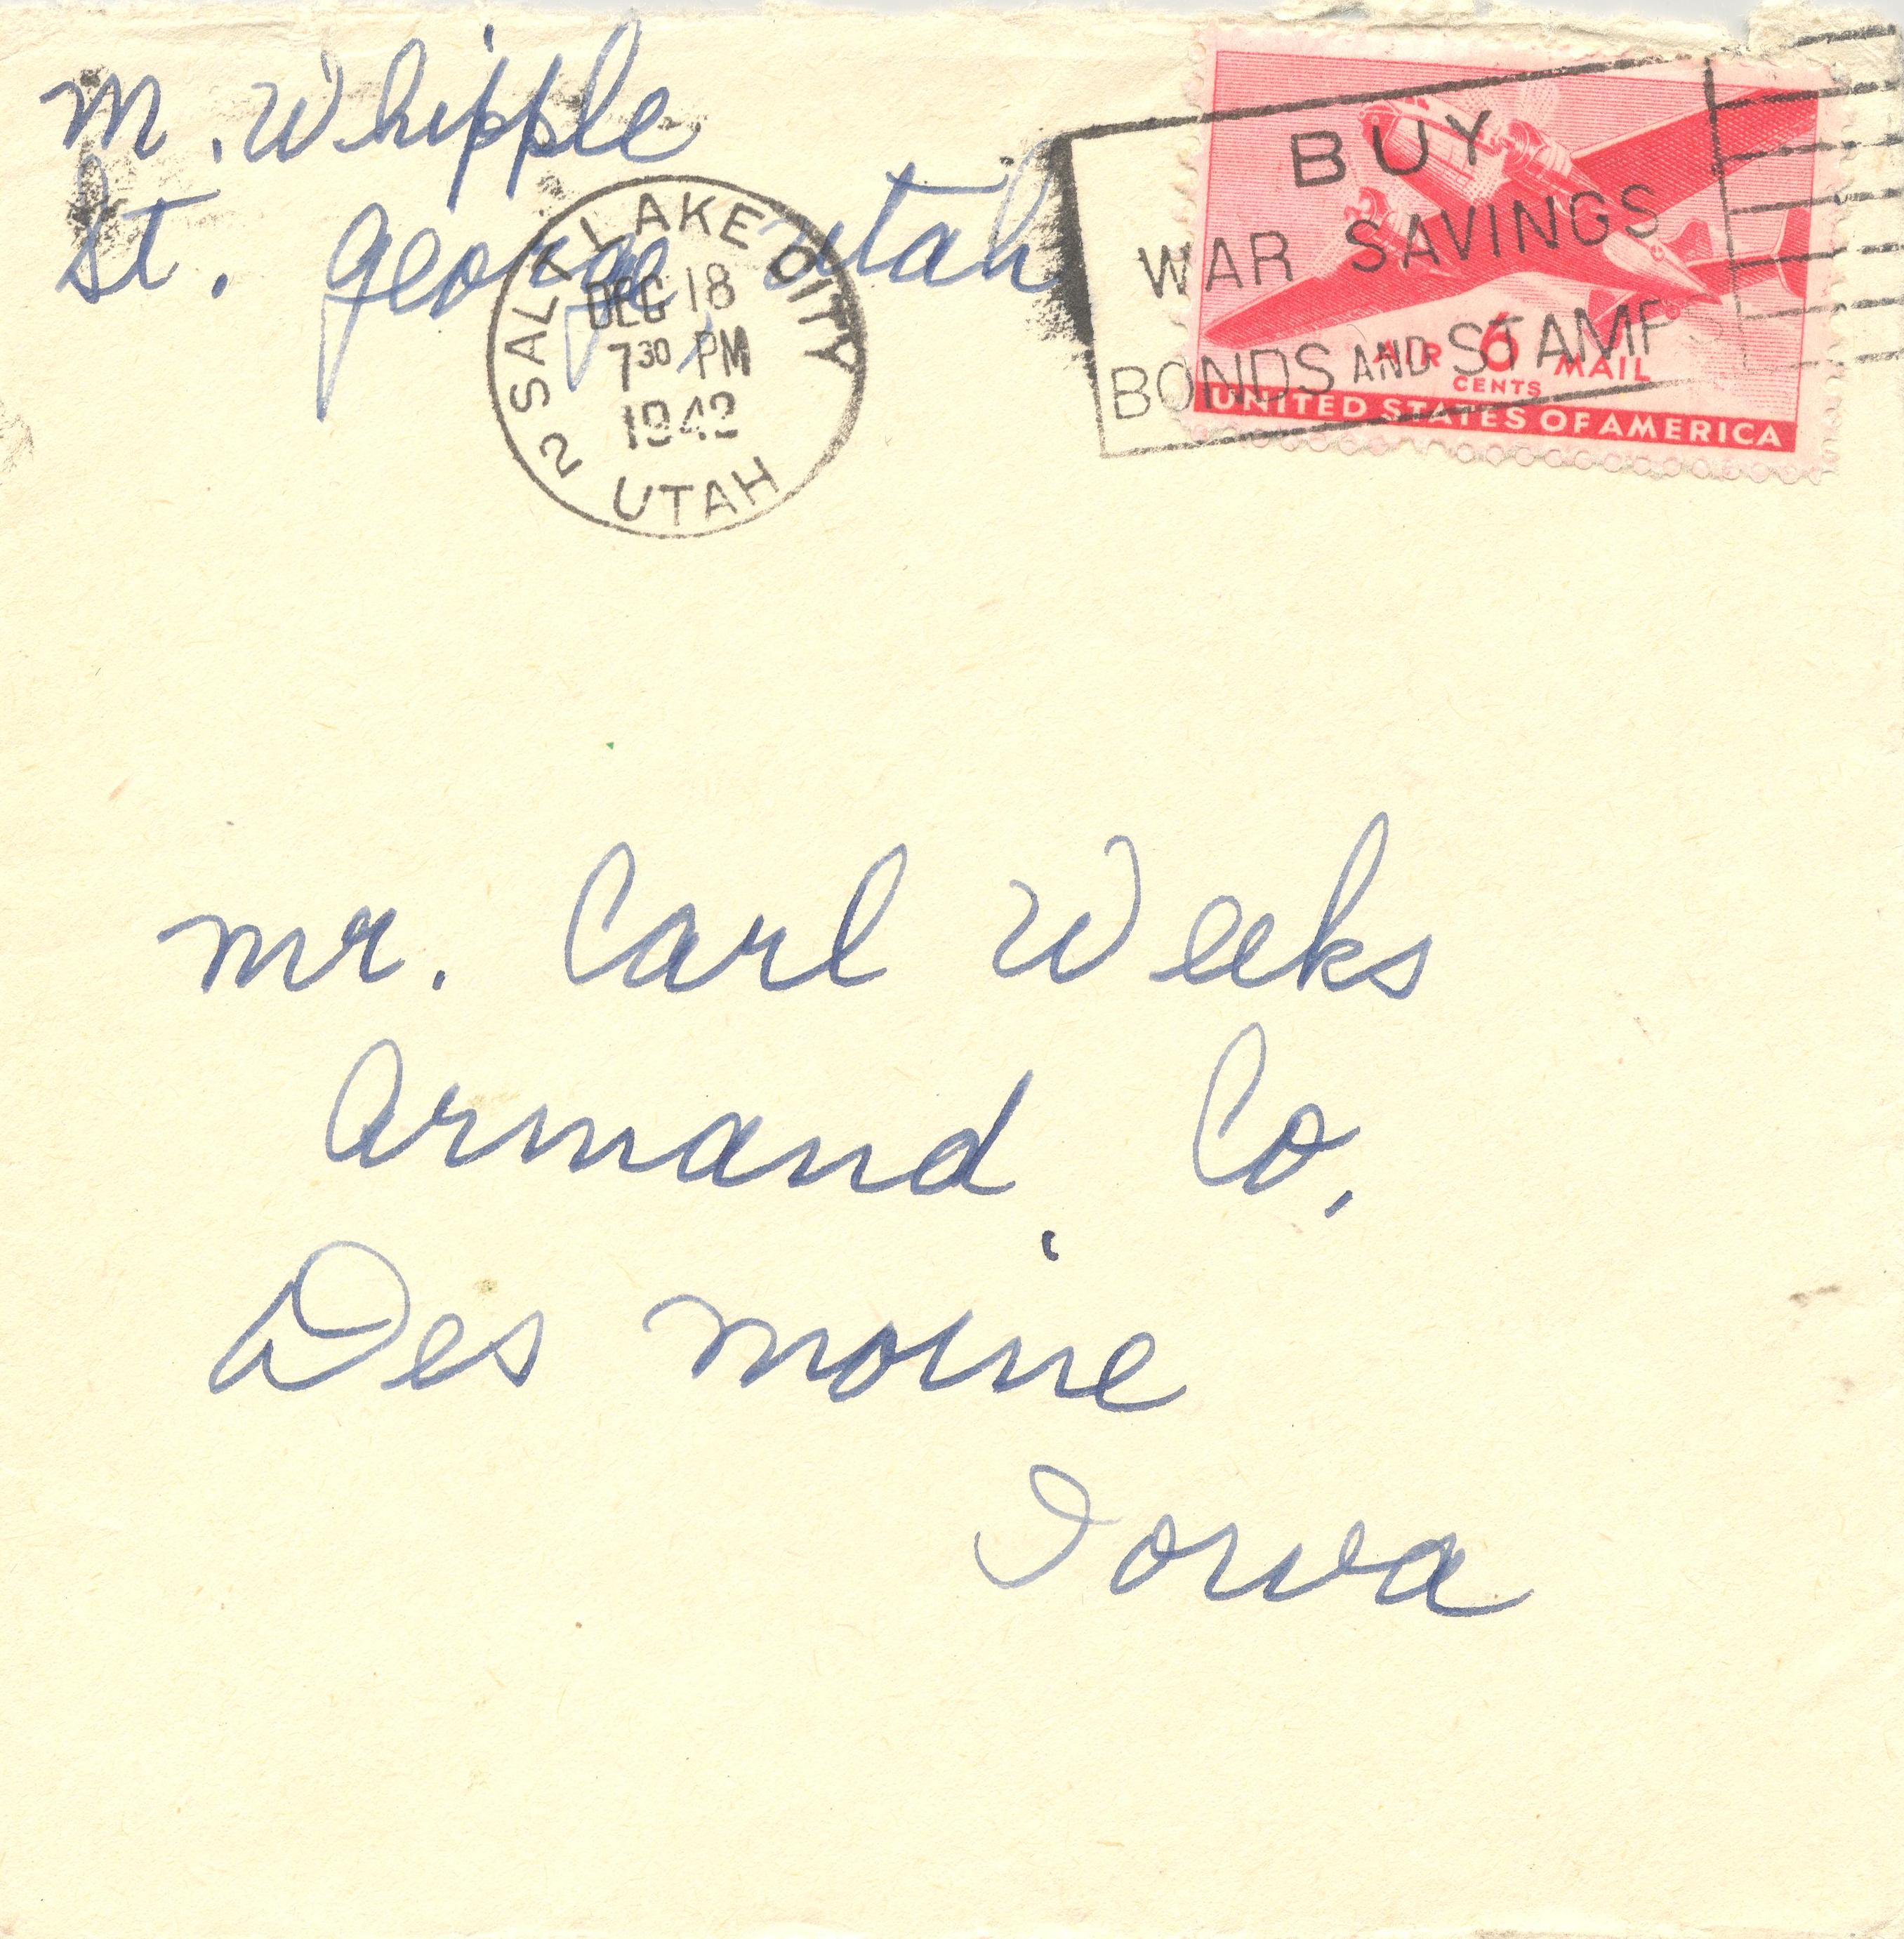 M. Whipple
St. George, Utah
SALT LAKE CITY
DEC 18
7 30 PM
1942
2 UTAH
BUY
WAR SAVINGS
BONDS AND STAMP
AIR 6 MAIL
CENTS
UNITED STATES OF AMERICA
Mr. Carl Weeks
Armand Co.
Des Moine
Iowa